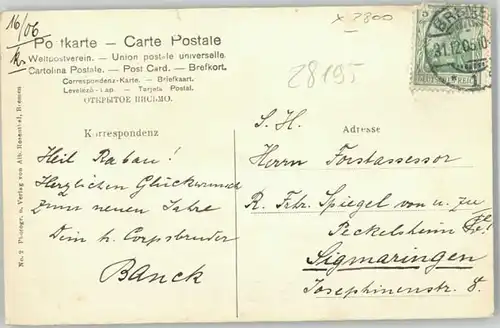 16/06
x 7800
28195
Postkarte – Carte Postale
Weltpostverein. – Union postale universelle.
Cartolina Postale. – Post Card. – Brefkort.
Correspondenz-Karte. – Briefkaart.
Levelező-Lap. – Tarjeta Postal.
ОТКРЫТОЕ ПИСЬМО.
BREMEN
31.12.05.10
1
DEUTSCHES REICH
5
Korrespondenz
Heil Rabau!
Herzlichen Glückwunsch
zum neuen Jahre
Dein tr. Corpsbruder
Banck
Adresse
S. H.
Herrn Forstassessor
R. Frhr. Spiegel von u. zu
Peckelsheim
Sigmaringen
Josephinenstr. 8.
No. 2 Photogr. u. Verlag von Alb. Rosenthal, Bremen